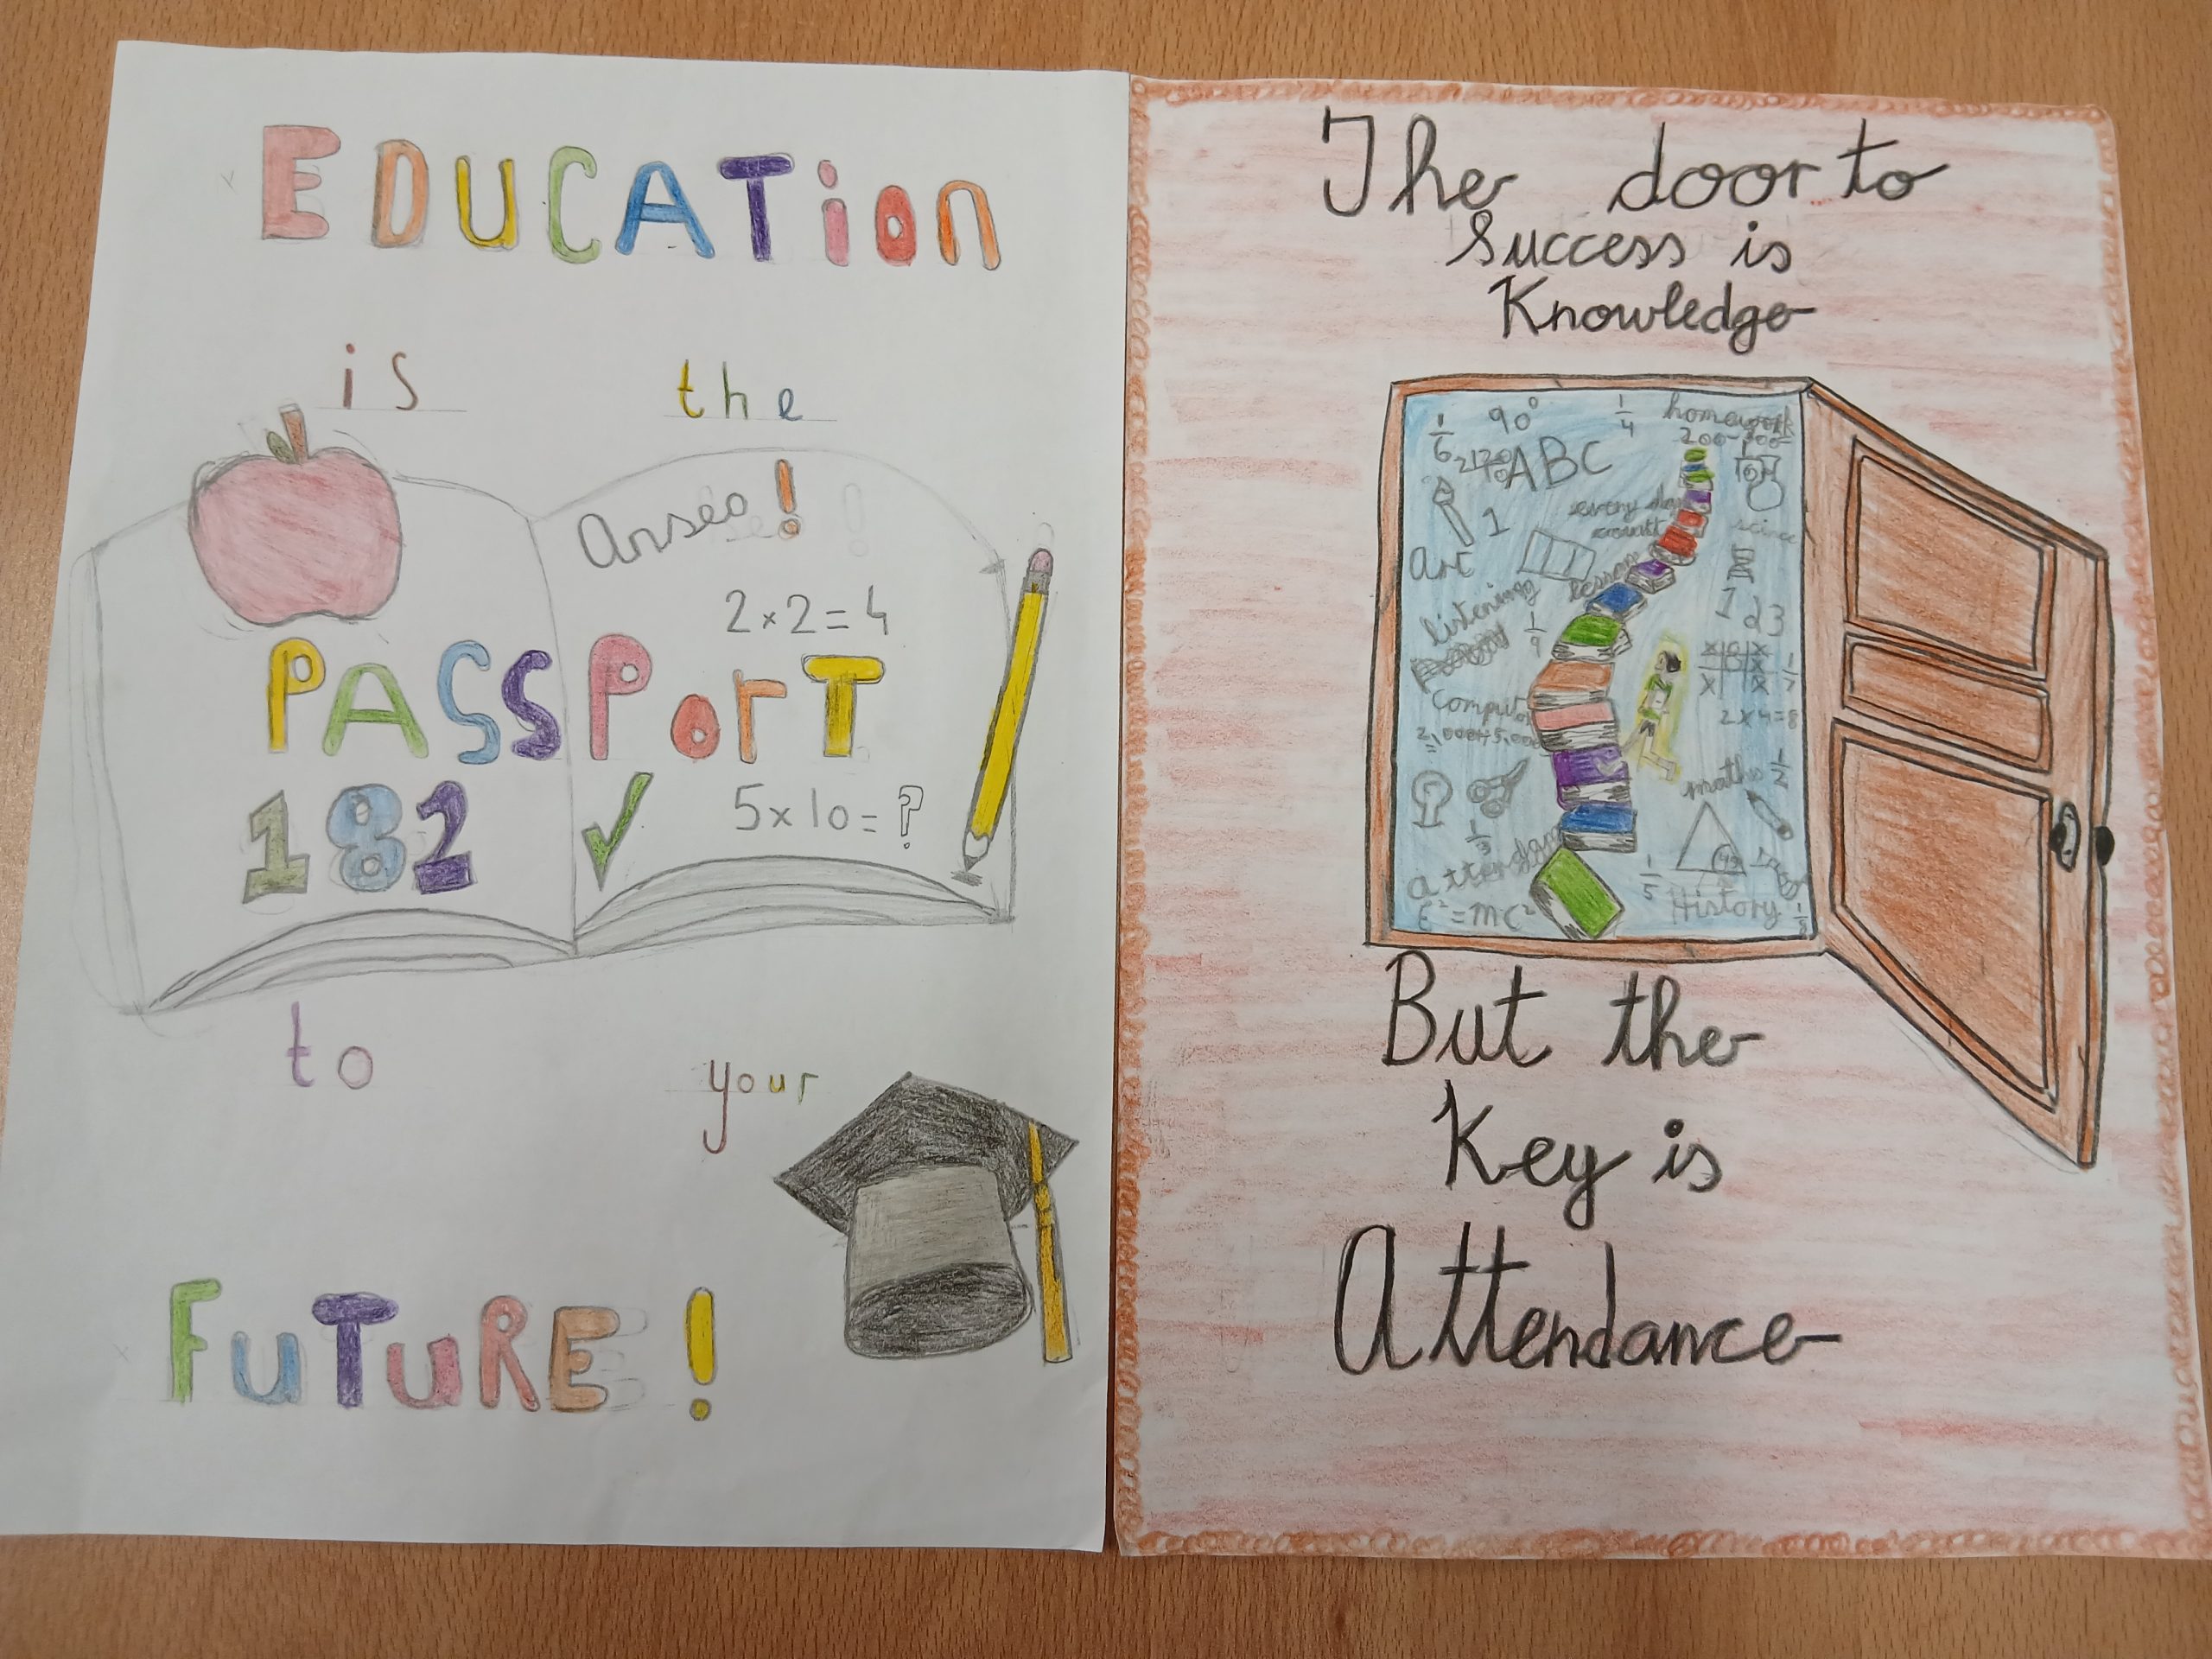 EDUCATion
is the
Anseo!
2×2=4
PASSPorT
182 ✓ 5×10=?
to your
FuTuRE!
The door to
Success is
Knowledge
1/6 90° 1/4 homework
ABC
every day
1
Art
science
lessons
listening
1/9
1 2 3
X O X
X
X X
1/7
2×4=8
maths 1/2
1/3
1/5
E²=mc²
History 1/8
But the
Key is
Attendance